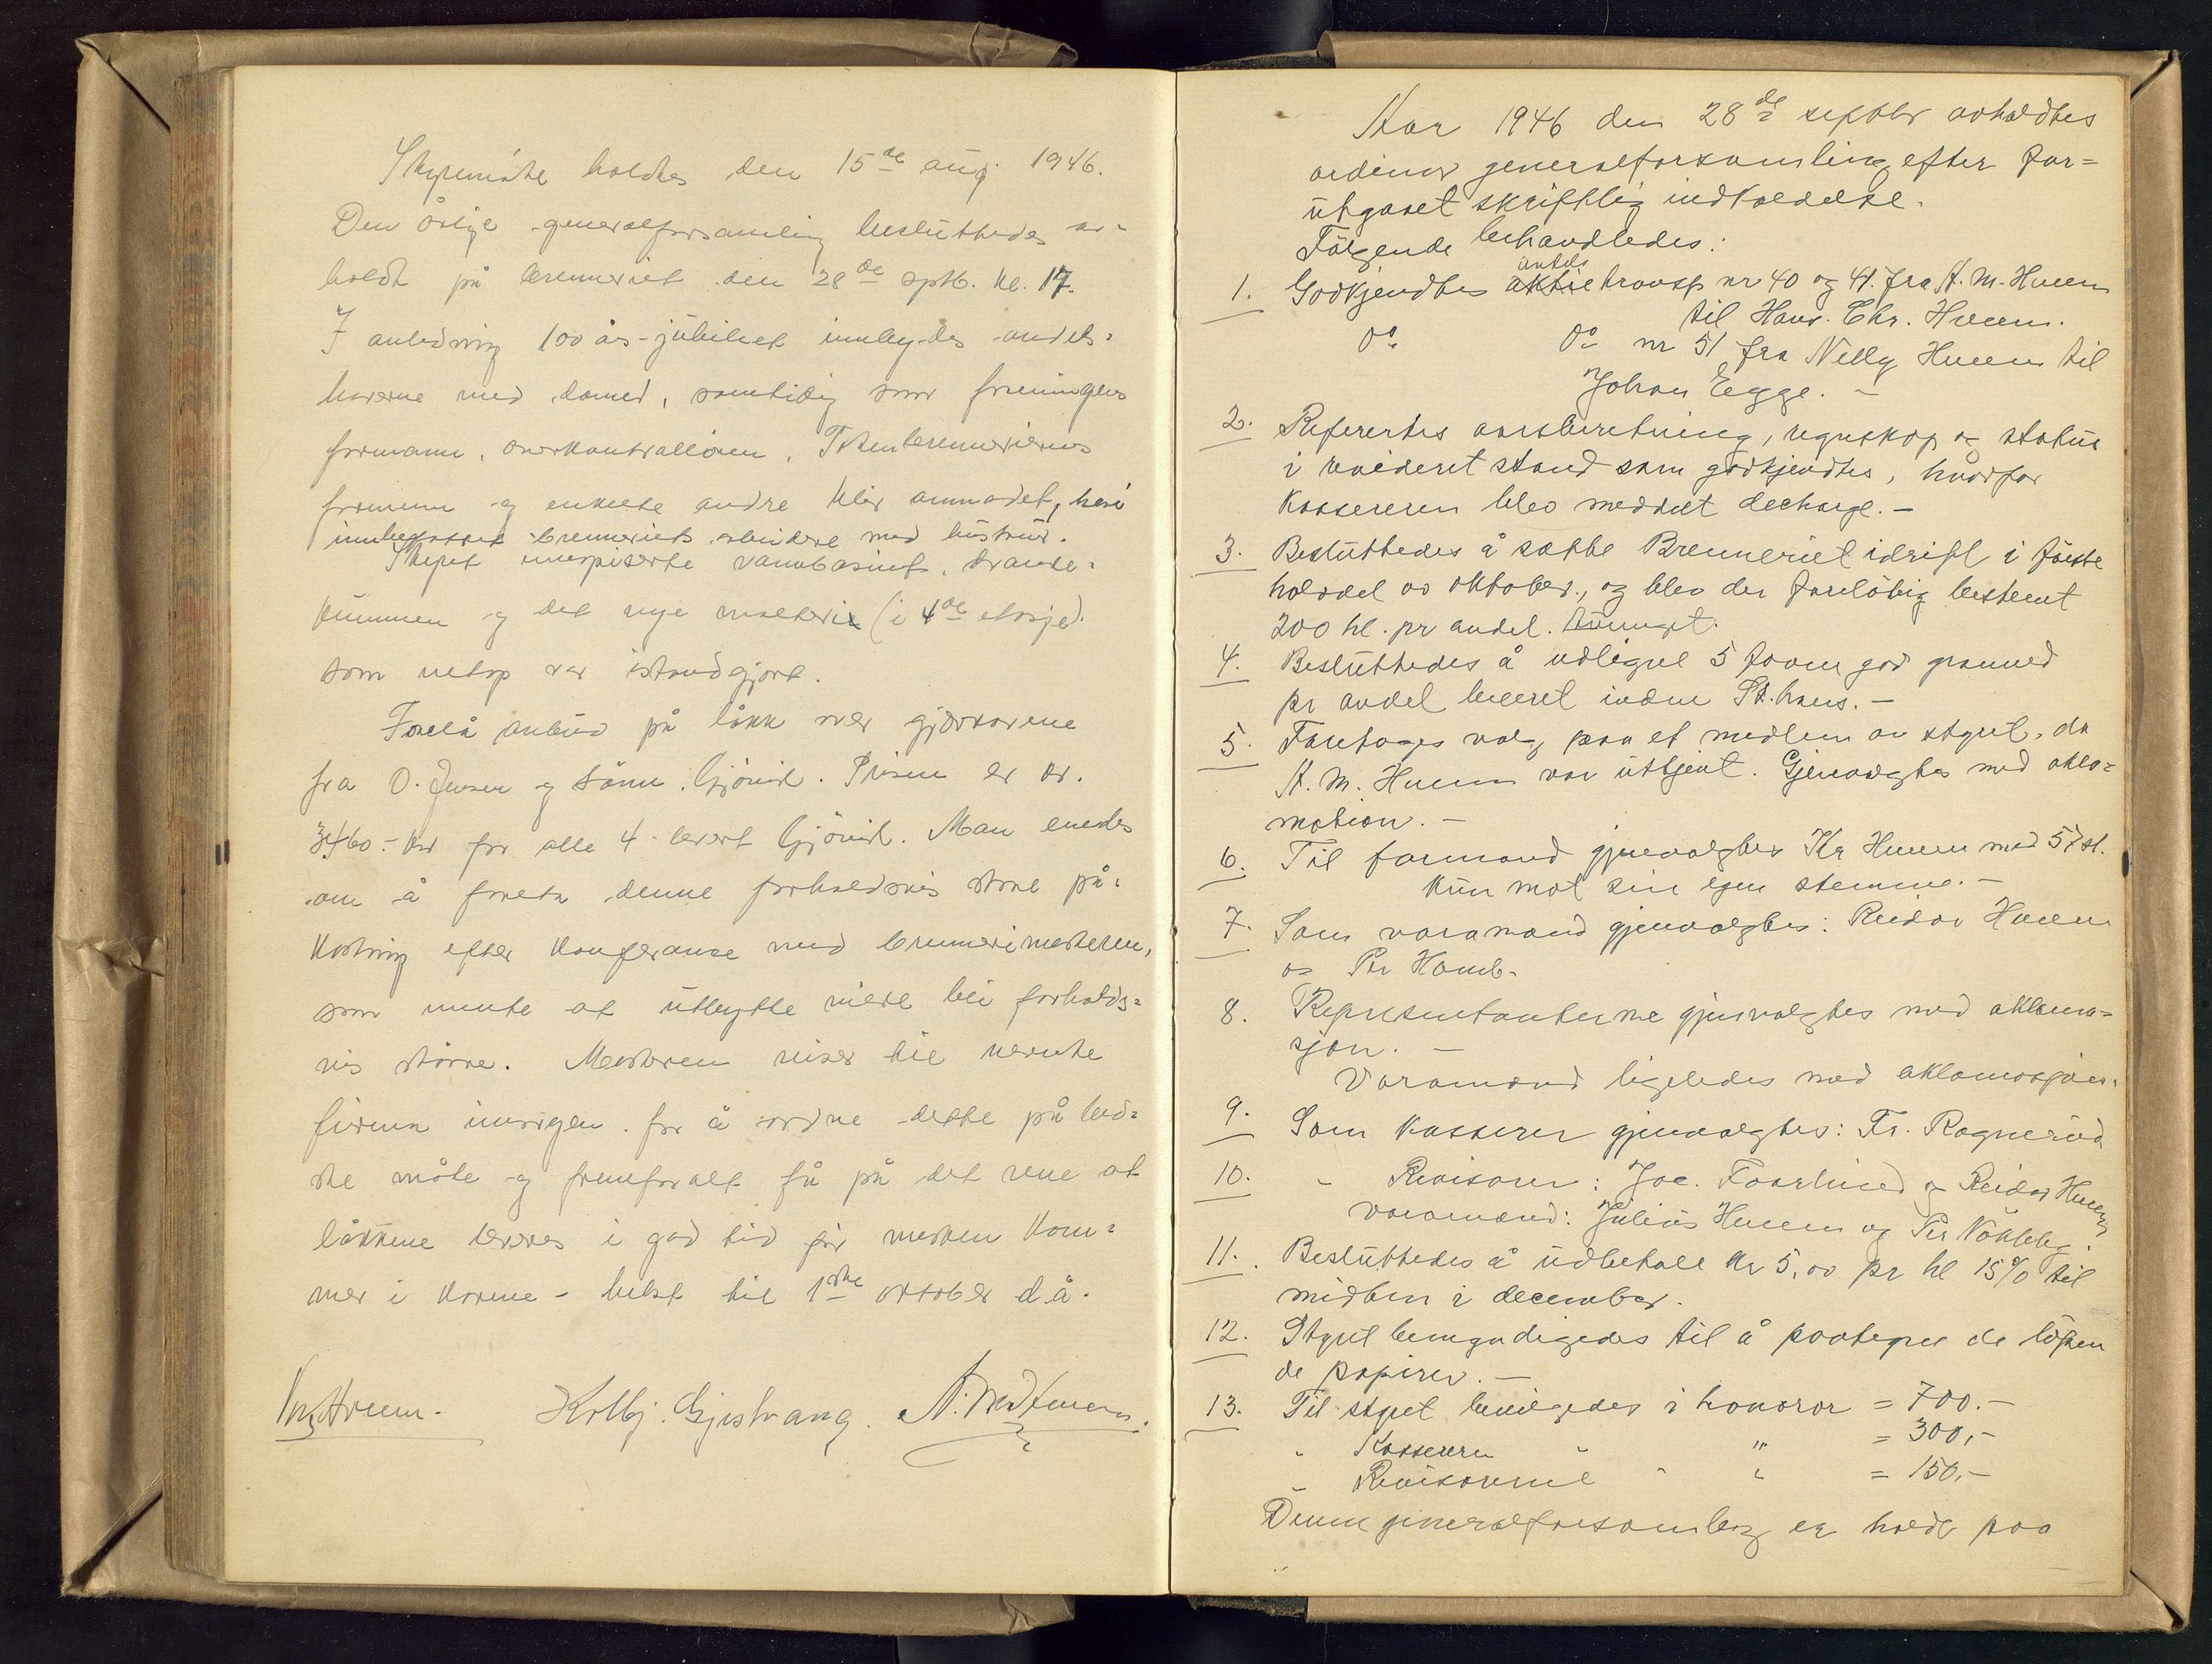 Styremöte holdtes den 15de aug. 1946.
Den årlige generalforsamling besluttedes av-
holdt på brenneriet den 28de sptb. kl. 17.
I anledning 100 års-jubileet innbydes andels-
haverne med damer, samtidig som foreningens
formann, overkontrollören, Totenbrenneriernes
formenn og enkelte andre blir anmodet, heri
innbefattet brenneriets arbeidere med hustruer.
Styret inspiserte vannbasinet, dranke-
kummen og det nye malteri (i 4de etasje)
som netop var istandgjort.
Forelå anbud på låkk over gjærkarene
fra O. Jensen og Sönn, Gjövik. Prisen er kr.
3460.- kr for alle 4 levert Gjövik. Man enedes
om å foreta denne forholdsvis store på-
kostning efter konferanse med brennerimesteren,
som mente at utbytte vilde bli forholds-
vis större. Mesteren reiser til nevnte
firma imorgen for å ordne dette på bed-
ste måte og fremforalt få på det rene at
låkkene leveres i god tid för mesken kom-
mer i karene - helst til 1ste oktober d.å.
Kr. Hveem. Kolbj. Gjestvang. A. M. Hveem.
Aar 1946 den 28de septbr avholdtes
ordinær generalforsamling efter for-
utgaaet skriftlig indkaldelse.
Fölgende behandledes:
andels
1. Godkjendtes aktietransp nr 40 og 41. fra A. M. Hveem
til Hans Chr. Hveem.
Do Do nr 51 fra Nelly Hveem til
Johan Egge. -
2. Refererte aarsberetning, regnskap og status
i revideret stand som godkjendtes, hvorfor
kassereren blev meddelt decharge. -
3. Besluttedes å sætte Brenneriet idrift i förste
halvdel av oktober, og blev der foreløbig bestemt
200 hl. pr andel.
4. Besluttedes å udligne 5 favner god granved
pr andel leveret inden St. hans. -
5. Foretoges valg paa et medlem av styret, da
A. M. Hveem var uttjent. Gjenvalgtes med akla-
mation. -
6. Til formand gjenvalgtes Kr Hveem med 57 st.
kun mot sin egen stemme. -
7. Som varamænd gjenvalgtes: Reidar Hveem
og Per Homb.
8. Representanterne gjenvalgtes med aklama-
sjon. -
Varamænd ligeledes med aklamasjon.
9. Som kasserer gjenvalgtes: Fr. Rognerud
10. " Revisorer: Joc. Faarlund og Reidar Hveem
varamænd: Julius Hveem og Per Nökleby.
11. Besluttedes å udbetale kr 5,00 pr hl 15% til
midten i december.
12. Styret bemyndigedes til å paategne de löpen
de papirer. -
13. Til styret bevilgedes i honorar = 700.-
" Kassereren " " = 300,-
" Revisorerne " " = 150,-
Denne generalforsamling er holdt paa